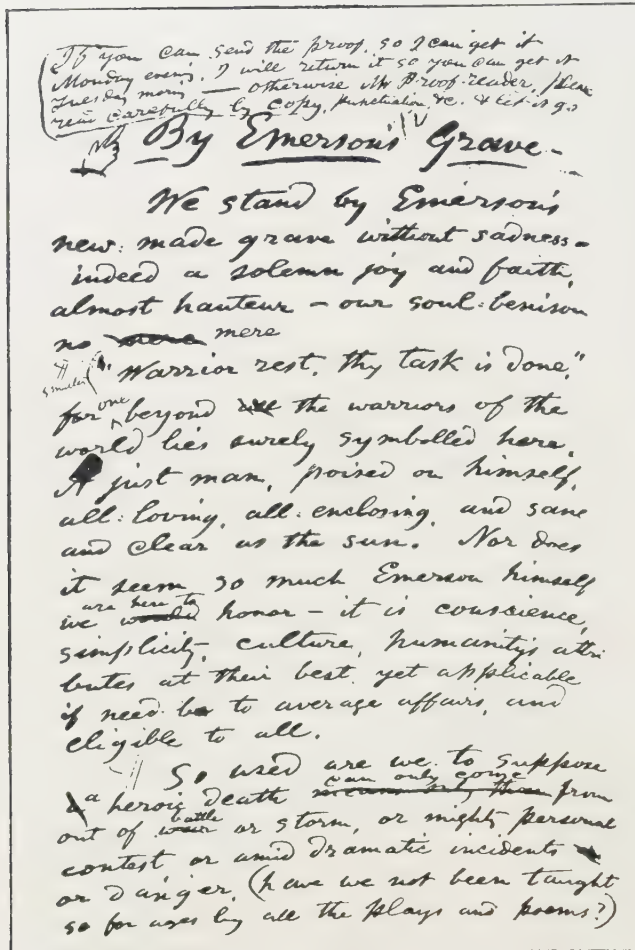 If you can send the proof so I can get it
Monday evn'g, I will return it so you can get it
Tuesday morn'g — otherwise Mr Proof-reader, please
read carefully by copy, punctuation, &c. & let it go
By Emerson's Grave —
We stand by Emerson's
new-made grave without sadness —
indeed a solemn joy and faith,
almost hauteur — our soul-benison
no mere
"Warrior rest, thy task is done,"
for one beyond the warriors of the
world lies surely symboll'd here.
A just man, poised on himself,
all-loving, all-enclosing, and sane
and clear as the sun. Nor does
it seem so much Emerson himself
we are here to honor — it is conscience,
simplicity, culture, humanity's attri
butes at their best, yet applicable
if need be to average affairs, and
eligible to all.
So used are we to suppose
a heroic death can only come from
out of battle or storm, or mighty personal
contest or amid dramatic incidents
or danger, (have we not been taught
so for ages by all the plays and poems?)